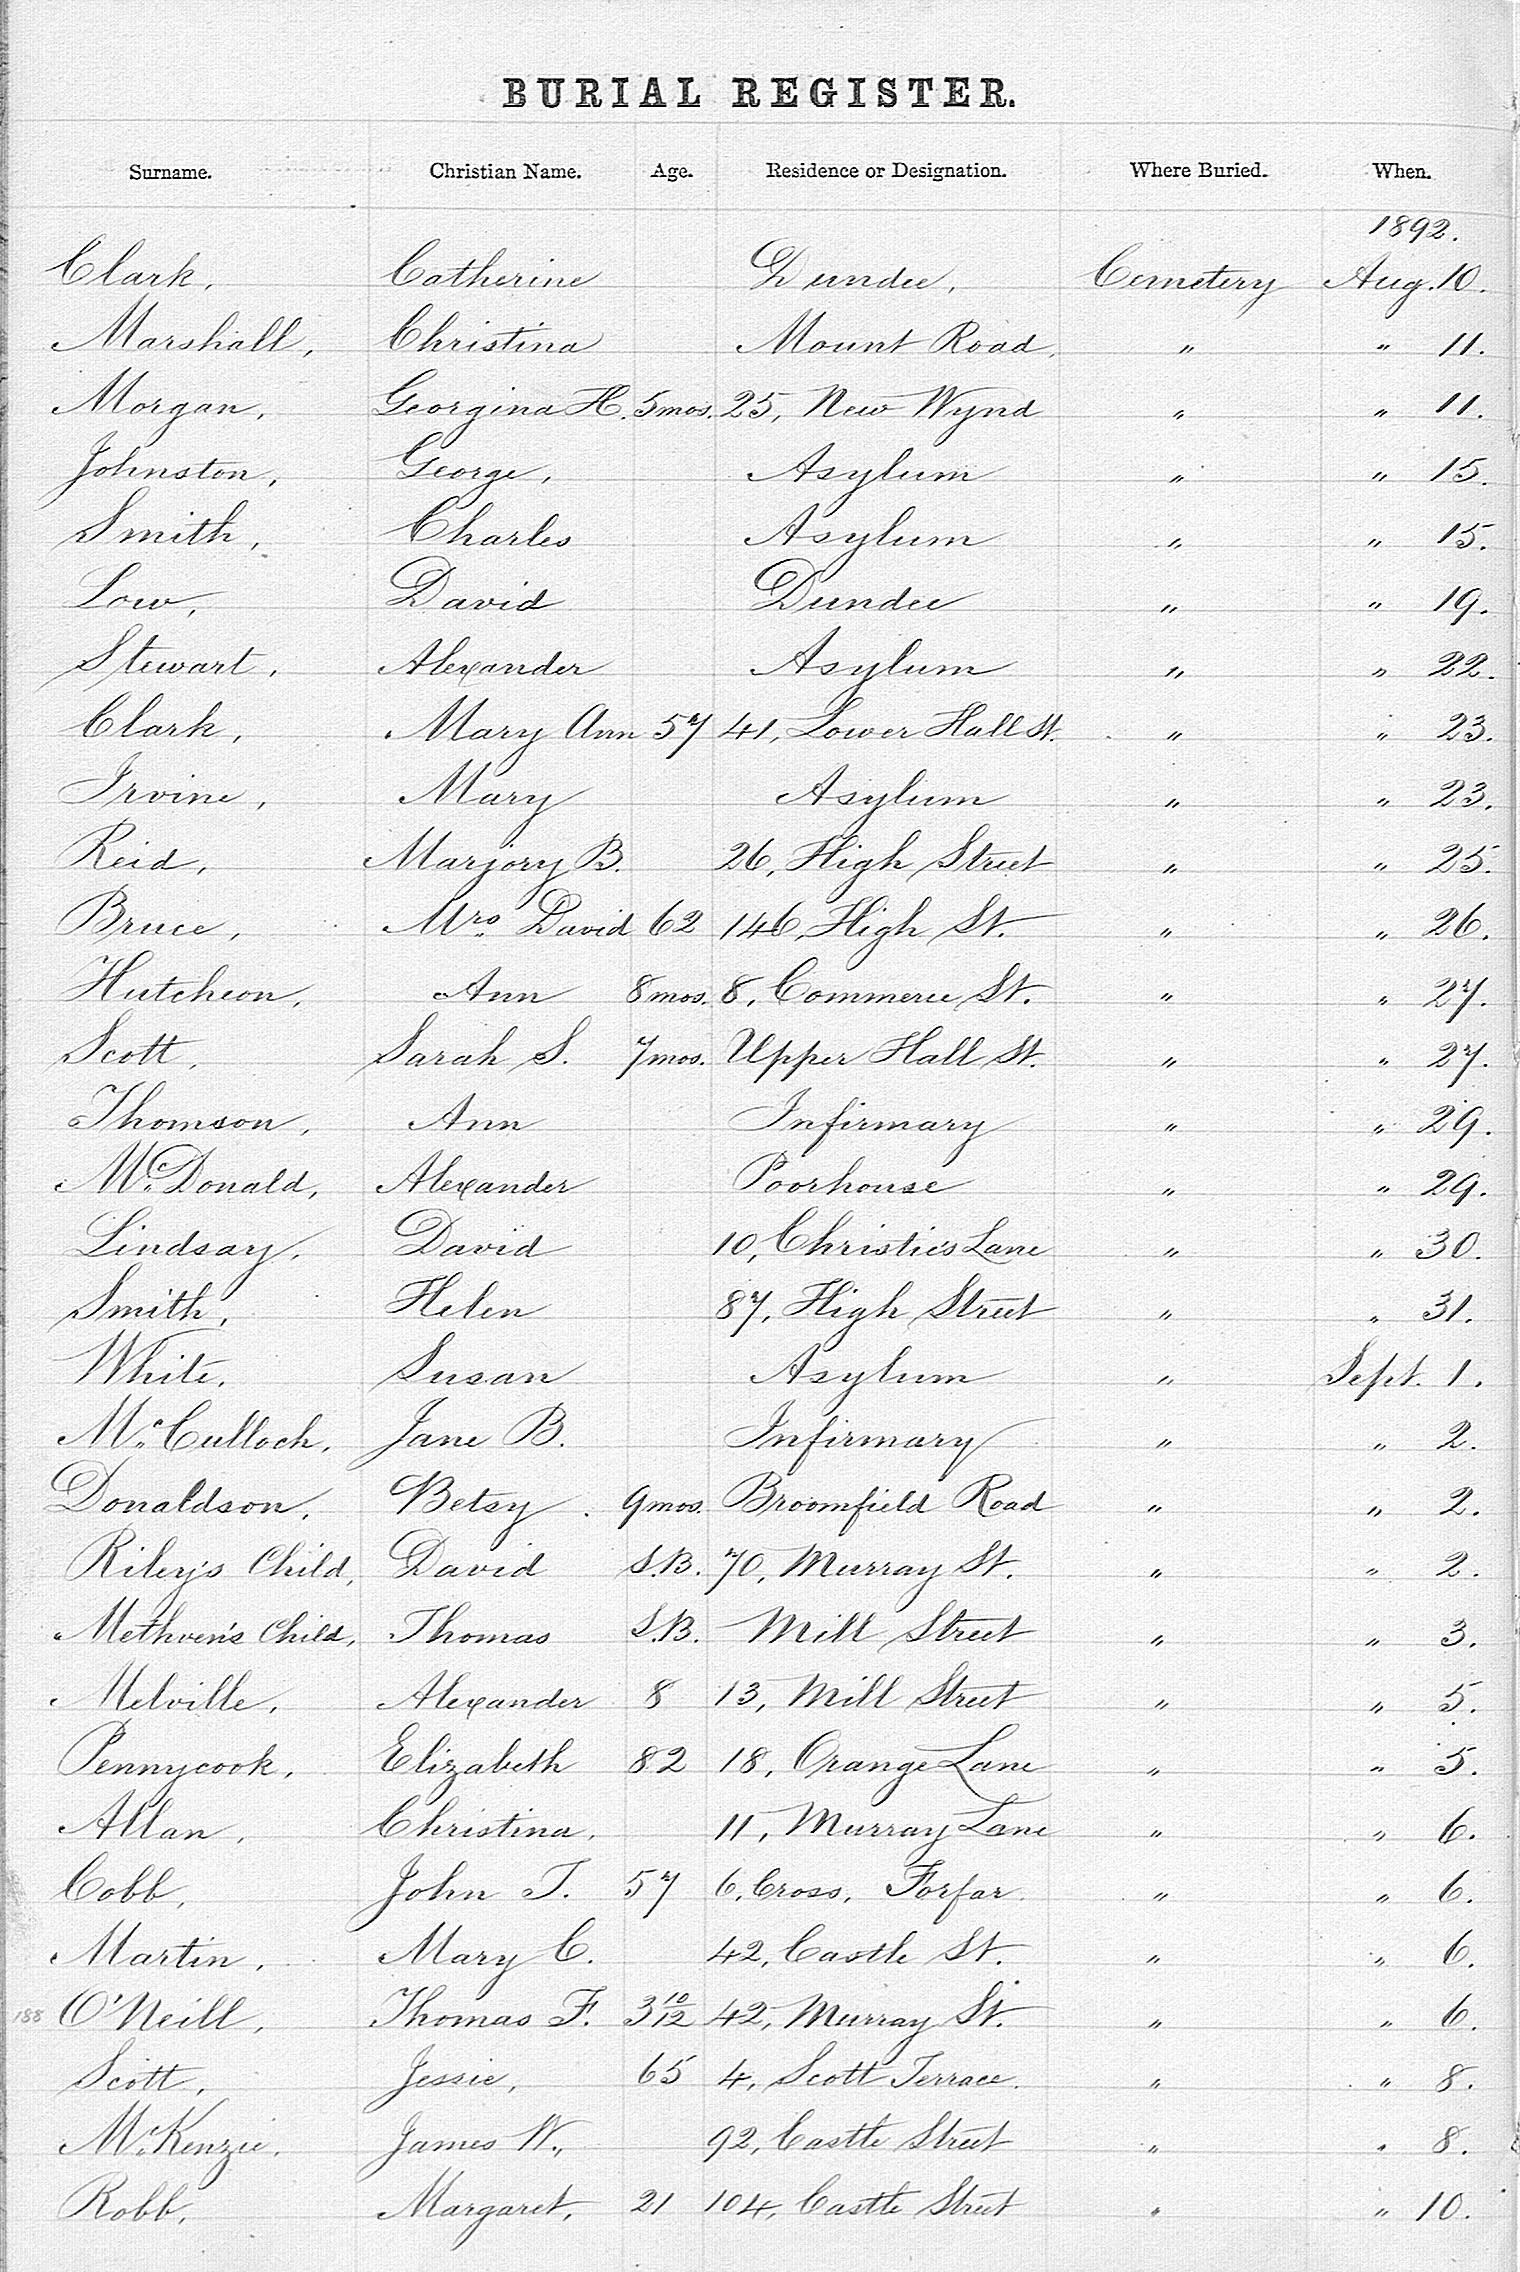 BURIAL REGISTER.
Surname. Christian Name. Age. Residence or Designation. Where Buried. When.
1892.
Clark, Catherine Dundee, Cemetery Aug. 10.
Marshall, Christina Mount Road, " " 11.
Morgan, Georgina H. 5mos. 25, New Wynd " " 11.
Johnston, George, Asylum " " 15.
Smith, Charles Asylum " " 15.
Low, David Dundee " " 19.
Stewart, Alexander Asylum " " 22.
Clark, Mary Ann 57 41, Lower Hall St. " " 23.
Irvine, Mary Asylum " " 23.
Reid, Marjory B. 26, High Street " " 25.
Bruce, Mrs. David 62 146, High St. " " 26.
Hutcheon, Ann 8mos. 8, Commerce St. " " 27.
Scott, Sarah S. 7mos. Upper Hall St. " " 27.
Thomson, Ann Infirmary " " 29.
McDonald, Alexander Poorhouse " " 29.
Lindsay, David 10, Christie's Lane " " 30.
Smith, Helen 87, High Street " " 31.
White, Susan Asylum " Sept. 1.
McCulloch, Jane B. Infirmary " " 2.
Donaldson, Betsy 9mos. Broomfield Road " " 2.
Riley's Child, David S.B. 70, Murray St. " " 2.
Methven's Child, Thomas S.B. Mill Street " " 3.
Melville, Alexander 8 13, Mill Street " " 5.
Pennycook, Elizabeth 82 18, Orange Lane " " 5.
Allan, Christina, 11, Murray Lane " " 6.
Cobb, John T. 57 6, Cross, Forfar " " 6.
Martin, Mary C. 42, Castle St. " " 6.
188 O'Neill, Thomas F. 3 10/12 42, Murray St. " " 6.
Scott, Jessie, 65 4, Scott Terrace. " " 8.
McKenzie, James W., 92, Castle Street " " 8.
Robb, Margaret, 21 104, Castle Street " " 10.